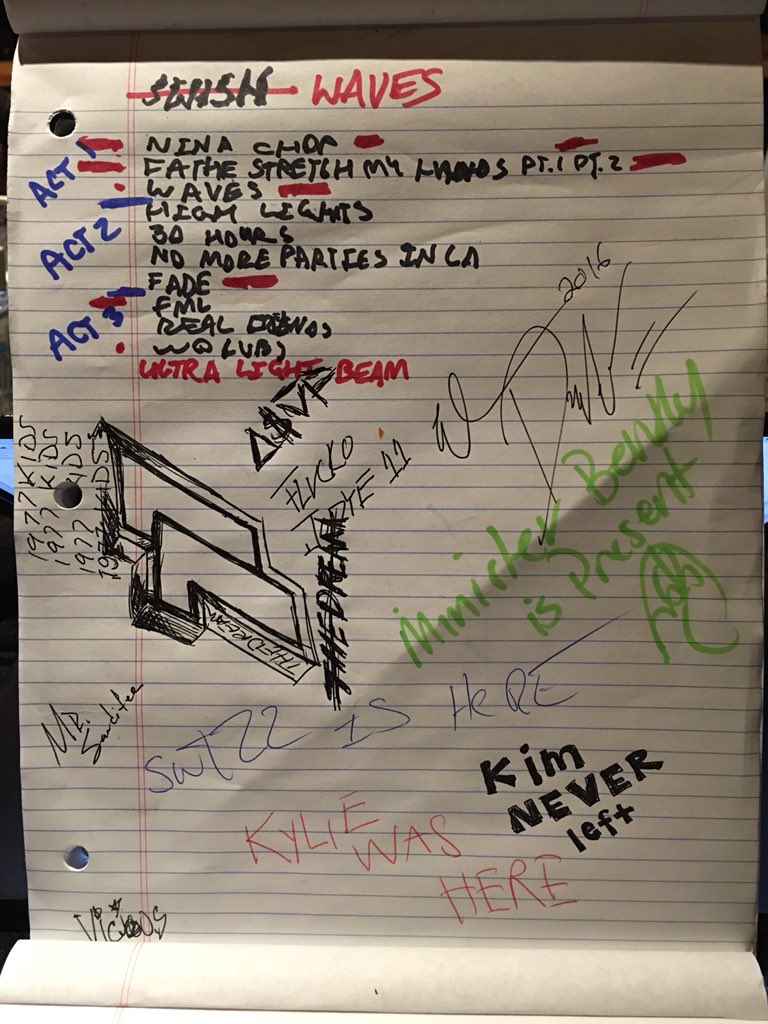 SWISH WAVES
ACT 1
NINA CHOP
FATHE STRETCH MY HANDS PT.1 PT.2
WAVES
ACT 2
HIGH LIGHTS
30 HOURS
NO MORE PARTIES IN LA
FADE
ACT 3
FML
REAL FRIENDS
WOLVES
ULTRA LIGHT BEAM
2016
A$AP
FLACKO
JODYE 11
THE DREAM
THE DREAM
1977 KIDS
1977 KIDS
1977 KIDS
1977 KIDS
Minister Bentley
is Present
Mr.
SWIZZ IS HERE
Kim
NEVER
left
KYLIE
WAS
HERE